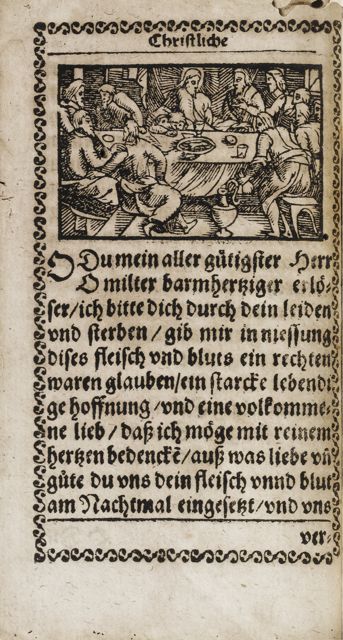 Christliche
O Du mein aller gütigster Herr
O milter barmhertziger erlö-
ser/ich bitte dich durch dein leiden
vnd sterben/gib mir in niessung
dises fleisch vnd bluts ein rechten
waren glauben/ein starcke lebendi
ge hoffnung/vnd eine volkomme-
ne lieb/daß ich möge mit reinem
hertzen bedenckẽ/auß was liebe vñ
gůte du vns dein fleisch vnnd blut
am Nachtmal eingesetzt/vnd vns
ver-